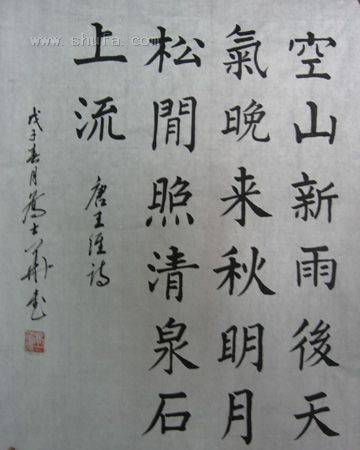 www.shufa.com
空山新雨後天
氣晚来秋明月
松閒照清泉石
上流
唐王维诗
戊子春月